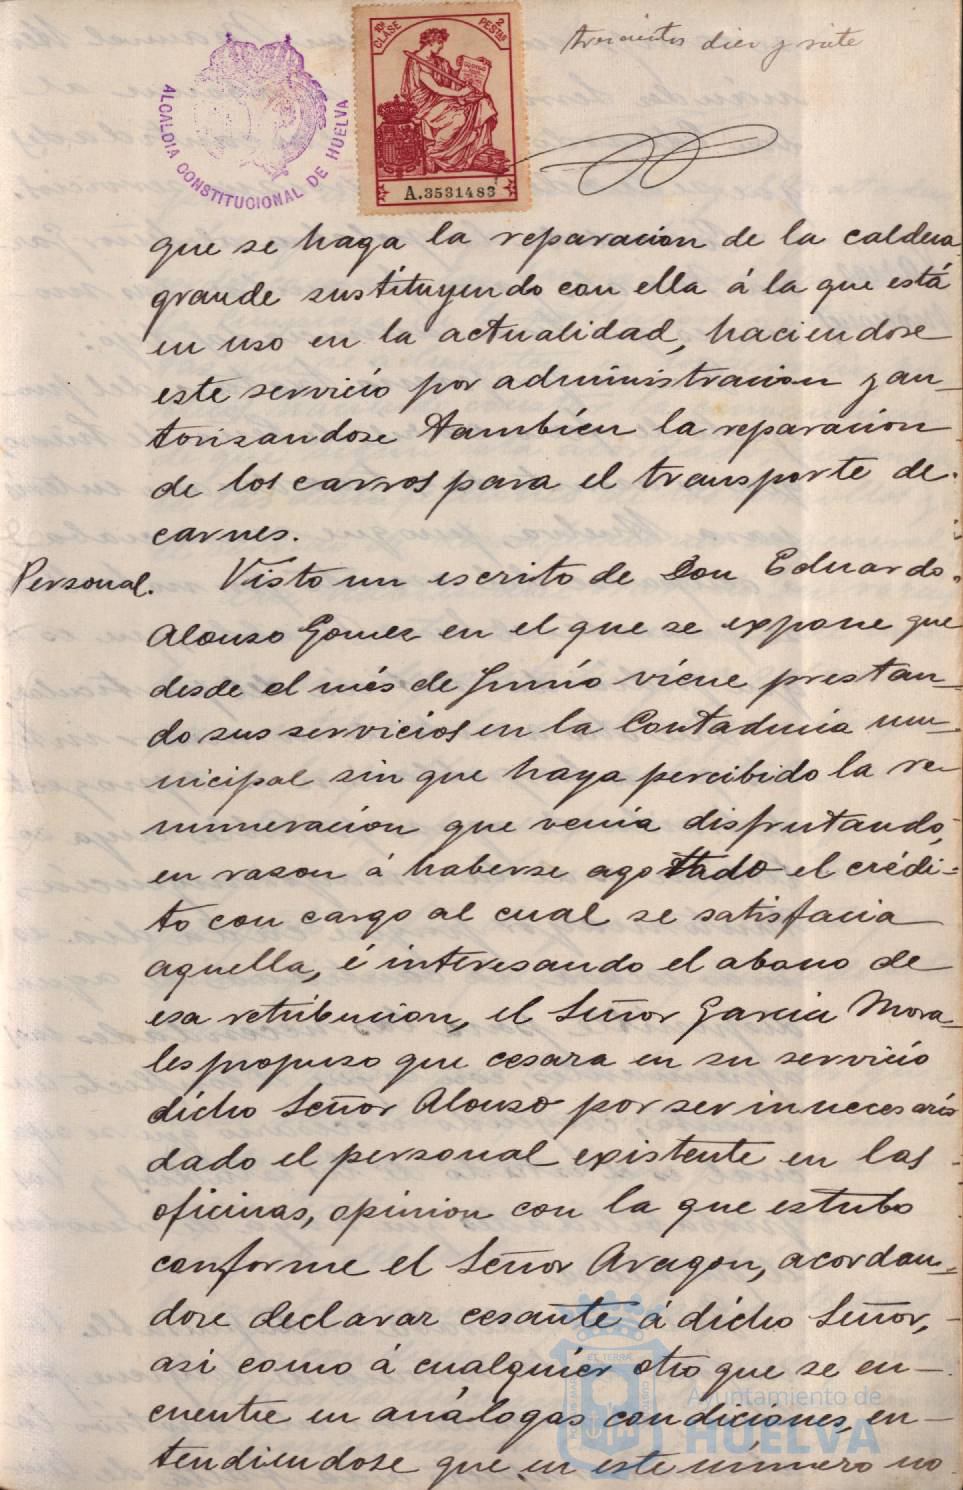 trescientos diez y siete
ALCALDIA CONSTITUCIONAL DE HUELVA
10ª CLASE 2 PESTAS
A.3531483
que se haga la reparacion de la caldera
grande sustituyendo con ella á la que está
en uso en la actualidad, haciendose
este servicio por administracion y au-
torisandose tambien la reparacion
de los carros para el transporte de
carnes.
Personal. Visto un escrito de Don Eduardo
Alonso Gomez en el que se expone que
desde el més de Junio viene prestan-
do sus servicios en la Contaduria mu-
nicipal sin que haya percibido la re-
muneracion que venia disfrutando,
en rason á haberse agotado el crédi-
to con cargo al cual se satisfacia
aquella, é interesando el abono de
esa retribucion, el Señor Garcia Mora-
les propuso que cesara en su servicio
dicho Señor Alonso por ser innecesario
dado el personal existente en las
oficinas, opinion con la que estubo
conforme el Señor Aragon, acordan-
dose declarar cesante á dicho Señor,
asi como á cualquier otro que se en-
cuentre en análogas condiciones, en-
tendiendose que en este número no
Ayuntamiento de
HUELVA